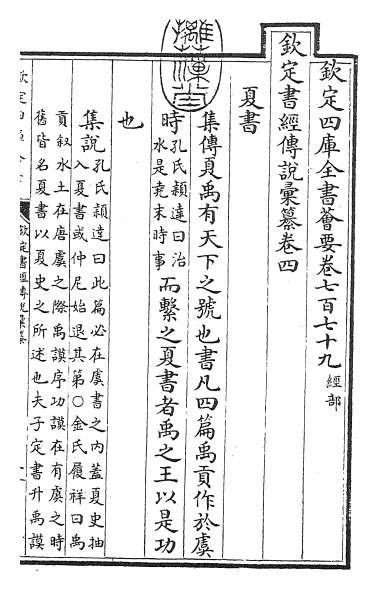 欽定四庫全書薈要卷七百七十九 經部
欽定書經傳說彙纂卷四
夏書
集傳夏禹有天下之號也書凡四篇禹貢作於虞
時孔氏穎達曰治
水是堯末時事
而繫之夏書者禹之王以是功
也
集說孔氏穎達曰此篇必在虞書之內蓋夏史抽
入夏書或仲尼始退其第○金氏履祥曰禹
貢叙水土在唐虞之際禹謨序功謨在有虞之時
舊皆名夏書以夏史之所述也夫子定書升禹謨
摛藻堂